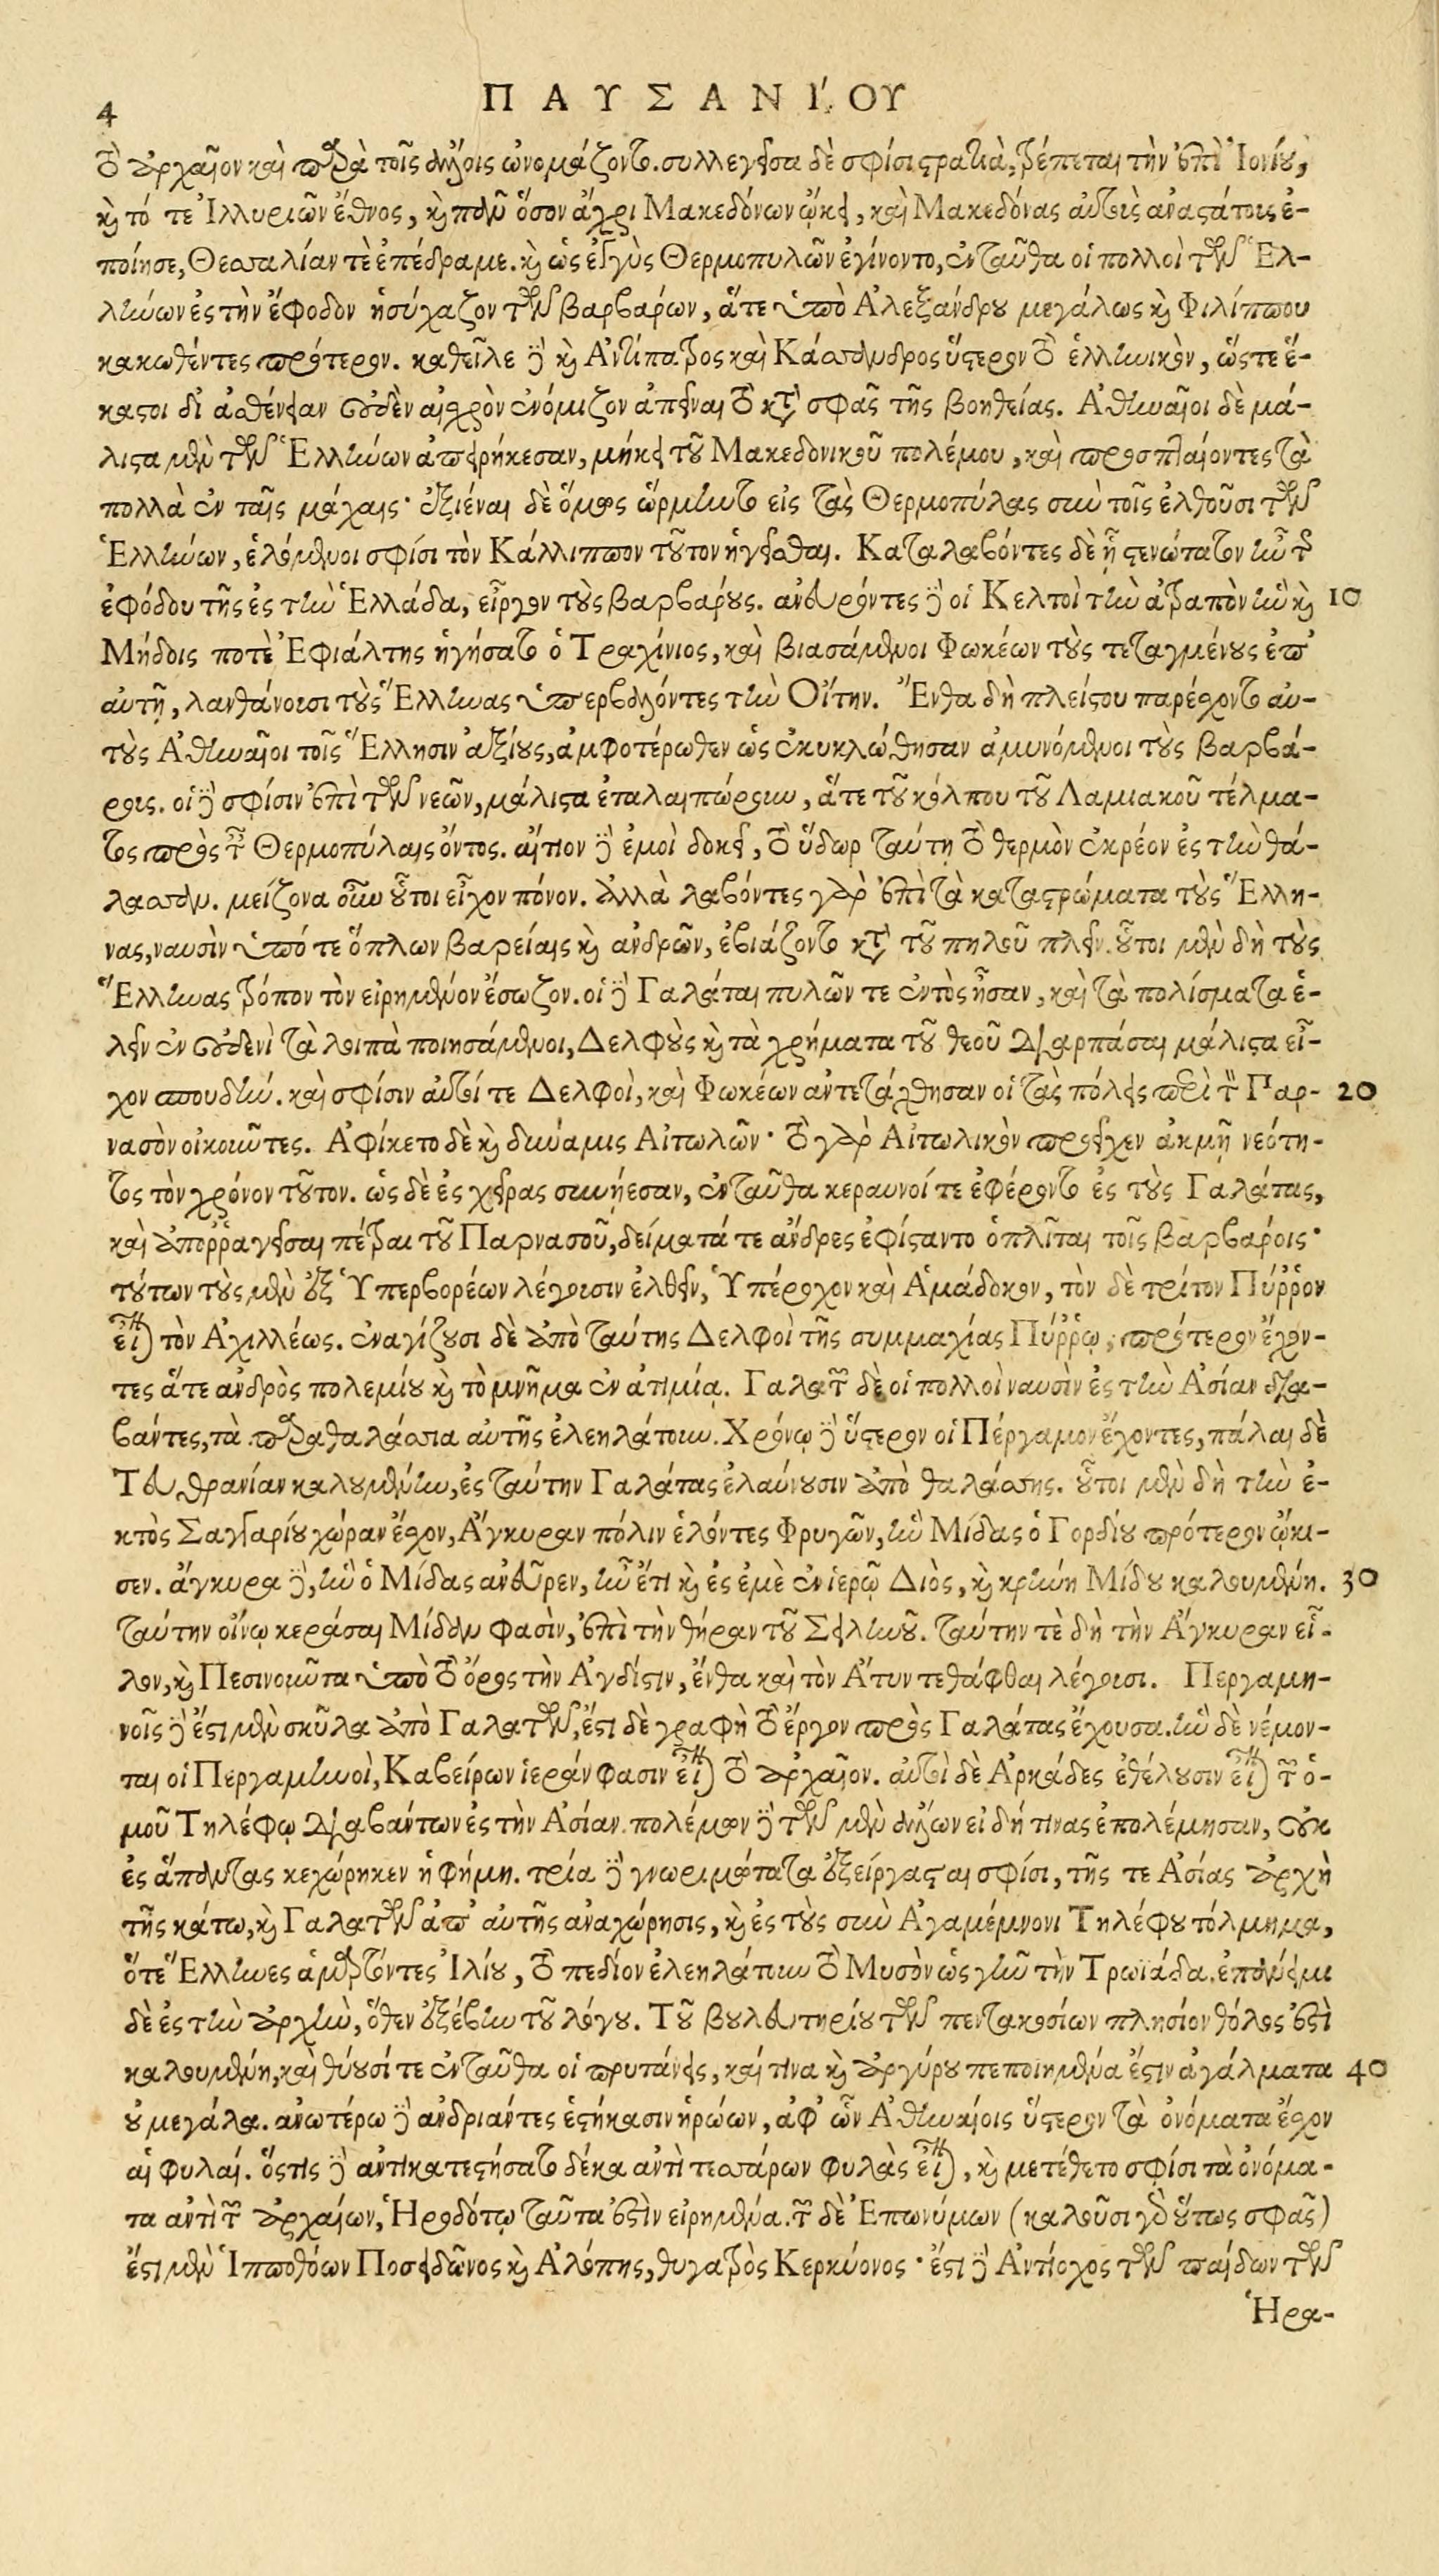 4 ΠΑΥΣΑΝΊΟΥ
τὸ ἀρχαῖον καὶ παρὰ τοῖς ἄλλοις ὠνομάζοντο. συλλεγεῖσα δὲ σφίσι στρατιὰ, τρέπεται τὴν ἐπὶ Ἰονίου,
καὶ τό τε Ἰλλυριῶν ἔθνος, καὶ πᾶν ὅσον ἄχρι Μακεδόνων ᾤκει, καὶ Μακεδόνας αὐτοὺς ἀναστάτους ἐ-
ποίησε, Θεσσαλίαν τὲ ἐπέδραμε. καὶ ὡς ἐγγὺς Θερμοπυλῶν ἐγίνοντο, ἐνταῦθα οἱ πολλοὶ τῶν Ἑλ-
λήνων ἐς τὴν ἔφοδον ἡσύχαζον τῶν βαρβάρων, ἅτε ὑπὸ Ἀλεξάνδρου μεγάλως καὶ Φιλίππου
κακωθέντες πρότερον. καθεῖλε δὲ καὶ Ἀντίπατρος καὶ Κάσσανδρος ὕστερον τὸ ἑλληνικὸν, ὥστε ἕ-
καστοι δι' ἀσθένειαν οὐδὲν αἰσχρὸν ἐνόμιζον ἀπεῖναι τὸ κατὰ σφᾶς τῆς βοηθείας. Ἀθηναῖοι δὲ μά-
λιστα μὲν τῶν Ἑλλήνων ἀπειρήκεσαν, μήκει τοῦ Μακεδονικοῦ πολέμου, καὶ προσπταίοντες τὰ
πολλὰ ἐν ταῖς μάχαις· ἐξιέναι δὲ ὅμως ὥρμηντο εἰς τὰς Θερμοπύλας σὺν τοῖς ἐλθοῦσι τῶν
Ἑλλήνων, ἑλόμενοι σφίσι τὸν Κάλλιππον τοῦτον ἡγεῖσθαι. Καταλαβόντες δὲ ᾗ στενώτατον ἦν τῆς
ἐφόδου τῆς ἐς τὴν Ἑλλάδα, εἶργον τοὺς βαρβάρους. ἀνευρόντες δὲ οἱ Κελτοὶ τὴν ἀτραπὸν ἣν καὶ 10
Μήδοις ποτὲ Ἐφιάλτης ἡγήσατο ὁ Τραχίνιος, καὶ βιασάμενοι Φωκέων τοὺς τεταγμένους ἐπ'
αὐτῇ, λανθάνουσι τοὺς Ἕλληνας ὑπερβαλόντες τὴν Οἴτην. Ἔνθα δὴ πλείστου παρέχοντο αὐ-
τοὺς Ἀθηναῖοι τοῖς Ἕλλησιν ἀξίους, ἀμφοτέρωθεν ὡς ἐκυκλώθησαν ἀμυνόμενοι τοὺς βαρβά-
ρους. οἱ δὲ σφίσιν ἐπὶ τῶν νεῶν, μάλιστα ἐταλαιπώρουν, ἅτε τοῦ κόλπου τοῦ Λαμιακοῦ τέλμα-
τος πρὸς ταῖς Θερμοπύλαις ὄντος. αἴτιον δὲ ἐμοὶ δοκεῖ, τὸ ὕδωρ ταύτῃ τὸ θερμὸν ἐκρέον ἐς τὴν θά-
λασσαν. μείζονα οὖν οὗτοι εἶχον πόνον. ἀλλὰ λαβόντες γὰρ ἐπὶ τὰ καταστρώματα τοὺς Ἕλλη-
νας, ναυσὶν ὑπό τε ὅπλων βαρείαις καὶ ἀνδρῶν, ἐβιάζοντο κατὰ τοῦ πηλοῦ πλεῖν. οὗτοι μὲν δὴ τοὺς
Ἕλληνας τρόπον τὸν εἰρημένον ἔσωζον. οἱ δὲ Γαλάται πυλῶν τε ἐντὸς ἦσαν, καὶ τὰ πολίσματα ἑ-
λεῖν ἐν οὐδενὶ τὰ λοιπὰ ποιησάμενοι, Δελφοὺς καὶ τὰ χρήματα τοῦ θεοῦ διαρπάσαι μάλιστα εἶ-
χον σπουδήν. καὶ σφίσιν αὐτοί τε Δελφοὶ, καὶ Φωκέων ἀντετάχθησαν οἱ τὰς πόλεις περὶ τὸν Παρ- 20
νασὸν οἰκοῦντες. Ἀφίκετο δὲ καὶ δύναμις Αἰτωλῶν· τὸ γὰρ Αἰτωλικὸν προεῖχεν ἀκμῇ νεότη-
τος τὸν χρόνον τοῦτον. ὡς δὲ ἐς χεῖρας συνῄεσαν, ἐνταῦθα κεραυνοί τε ἐφέροντο ἐς τοὺς Γαλάτας,
καὶ ἀποῤῥαγεῖσαι πέτραι τοῦ Παρνασοῦ, δείματά τε ἄνδρες ἐφίσταντο ὁπλῖται τοῖς βαρβάροις·
τούτων τοὺς μὲν ἐξ Ὑπερβορέων λέγουσιν ἐλθεῖν, Ὑπέροχον καὶ Ἀμάδοκον, τὸν δὲ τρίτον Πύῤῥον
εἶναι τὸν Ἀχιλλέως. ἐναγίζουσι δὲ ἀπὸ ταύτης Δελφοὶ τῆς συμμαχίας Πύῤῥῳ, πρότερον ἔχον-
τες ἅτε ἀνδρὸς πολεμίου καὶ τὸ μνῆμα ἐν ἀτιμίᾳ. Γαλατῶν δὲ οἱ πολλοὶ ναυσὶν ἐς τὴν Ἀσίαν δια-
βάντες, τὰ παραθαλάσσια αὐτῆς ἐλεηλάτουν. Χρόνῳ δὲ ὕστερον οἱ Πέργαμον ἔχοντες, πάλαι δὲ
Τευθρανίαν καλουμένην, ἐς ταύτην Γαλάτας ἐλαύνουσιν ἀπὸ θαλάσσης. οὗτοι μὲν δὴ τὴν ἐ-
κτὸς Σαγγαρίου χώραν ἔχον, Ἄγκυραν πόλιν ἑλόντες Φρυγῶν, ἣν Μίδας ὁ Γορδίου πρότερον ᾤκι-
σεν. ἄγκυρα δὲ, ἣν ὁ Μίδας ἀνεῦρεν, ἦν ἔτι καὶ ἐς ἐμὲ ἐν ἱερῷ Διὸς, καὶ κρήνη Μίδου καλουμένη. 30
ταύτην οἴνῳ κεράσαι Μίδαν φασὶν, ἐπὶ τὴν θήραν τοῦ Σειληνοῦ. ταύτην τὲ δὴ τὴν Ἄγκυραν εἷ-
λον, καὶ Πεσινοῦντα ὑπὸ τὸ ὄρος τὴν Ἀγδίστιν, ἔνθα καὶ τὸν Ἄτυν τεθάφθαι λέγουσι. Περγαμη-
νοῖς δὲ ἔστι μὲν σκῦλα ἀπὸ Γαλατῶν, ἔστι δὲ γραφὴ τὸ ἔργον πρὸς Γαλάτας ἔχουσα. ἣν δὲ νέμον-
ται οἱ Περγαμηνοὶ, Καβείρων ἱεράν φασιν εἶναι τὸ ἀρχαῖον. αὐτοὶ δὲ Ἀρκάδες ἐθέλουσιν εἶναι τῶν ὁ-
μοῦ Τηλέφῳ διαβάντων ἐς τὴν Ἀσίαν. πολέμων δὲ τῶν μὲν ἄλλων εἰ δή τινας ἐπολέμησαν, οὐκ
ἐς ἅπαντας κεχώρηκεν ἡ φήμη. τρία δὲ γνωριμώτατα ἐξείργασται σφίσι, τῆς τε Ἀσίας ἀρχὴ
τῆς κάτω, καὶ Γαλατῶν ἀπ' αὐτῆς ἀναχώρησις, καὶ ἐς τοὺς σὺν Ἀγαμέμνονι Τηλέφου τόλμημα,
ὅτε Ἕλληνες ἁμαρτόντες Ἰλίου, τὸ πεδίον ἐλεηλάτουν τὸ Μυσὸν ὡς γῆν τὴν Τρωϊάδα. ἐπάνειμι
δὲ ἐς τὴν ἀρχὴν, ὅθεν ἐξέβην τοῦ λόγου. Τοῦ βουλευτηρίου τῶν πεντακοσίων πλησίον θόλος ἐστὶ
καλουμένη, καὶ θύουσί τε ἐνταῦθα οἱ πρυτάνεις, καί τινα καὶ ἀργύρου πεποιημένα ἔστιν ἀγάλματα 40
οὐ μεγάλα. ἀνωτέρω δὲ ἀνδριάντες ἑστήκασιν ἡρώων, ἀφ' ὧν Ἀθηναίοις ὕστερον τὰ ὀνόματα ἔχον
αἱ φυλαί. ὅστις δὲ ἀντικατεστήσατο δέκα ἀντὶ τεσσάρων φυλὰς εἶναι, καὶ μετέθετο σφίσι τὰ ὀνόμα-
τα ἀντὶ τῶν ἀρχαίων, Ἡροδότῳ ταῦτα ἐστὶν εἰρημένα. τῶν δὲ Ἐπωνύμων (καλοῦσι γὰρ οὕτως σφᾶς)
ἔστι μὲν Ἱπποθόων Ποσειδῶνος καὶ Ἀλόπης, θυγατρὸς Κερκύονος· ἔστι δὲ Ἀντίοχος τῶν παίδων τῶν
Ἡρα-